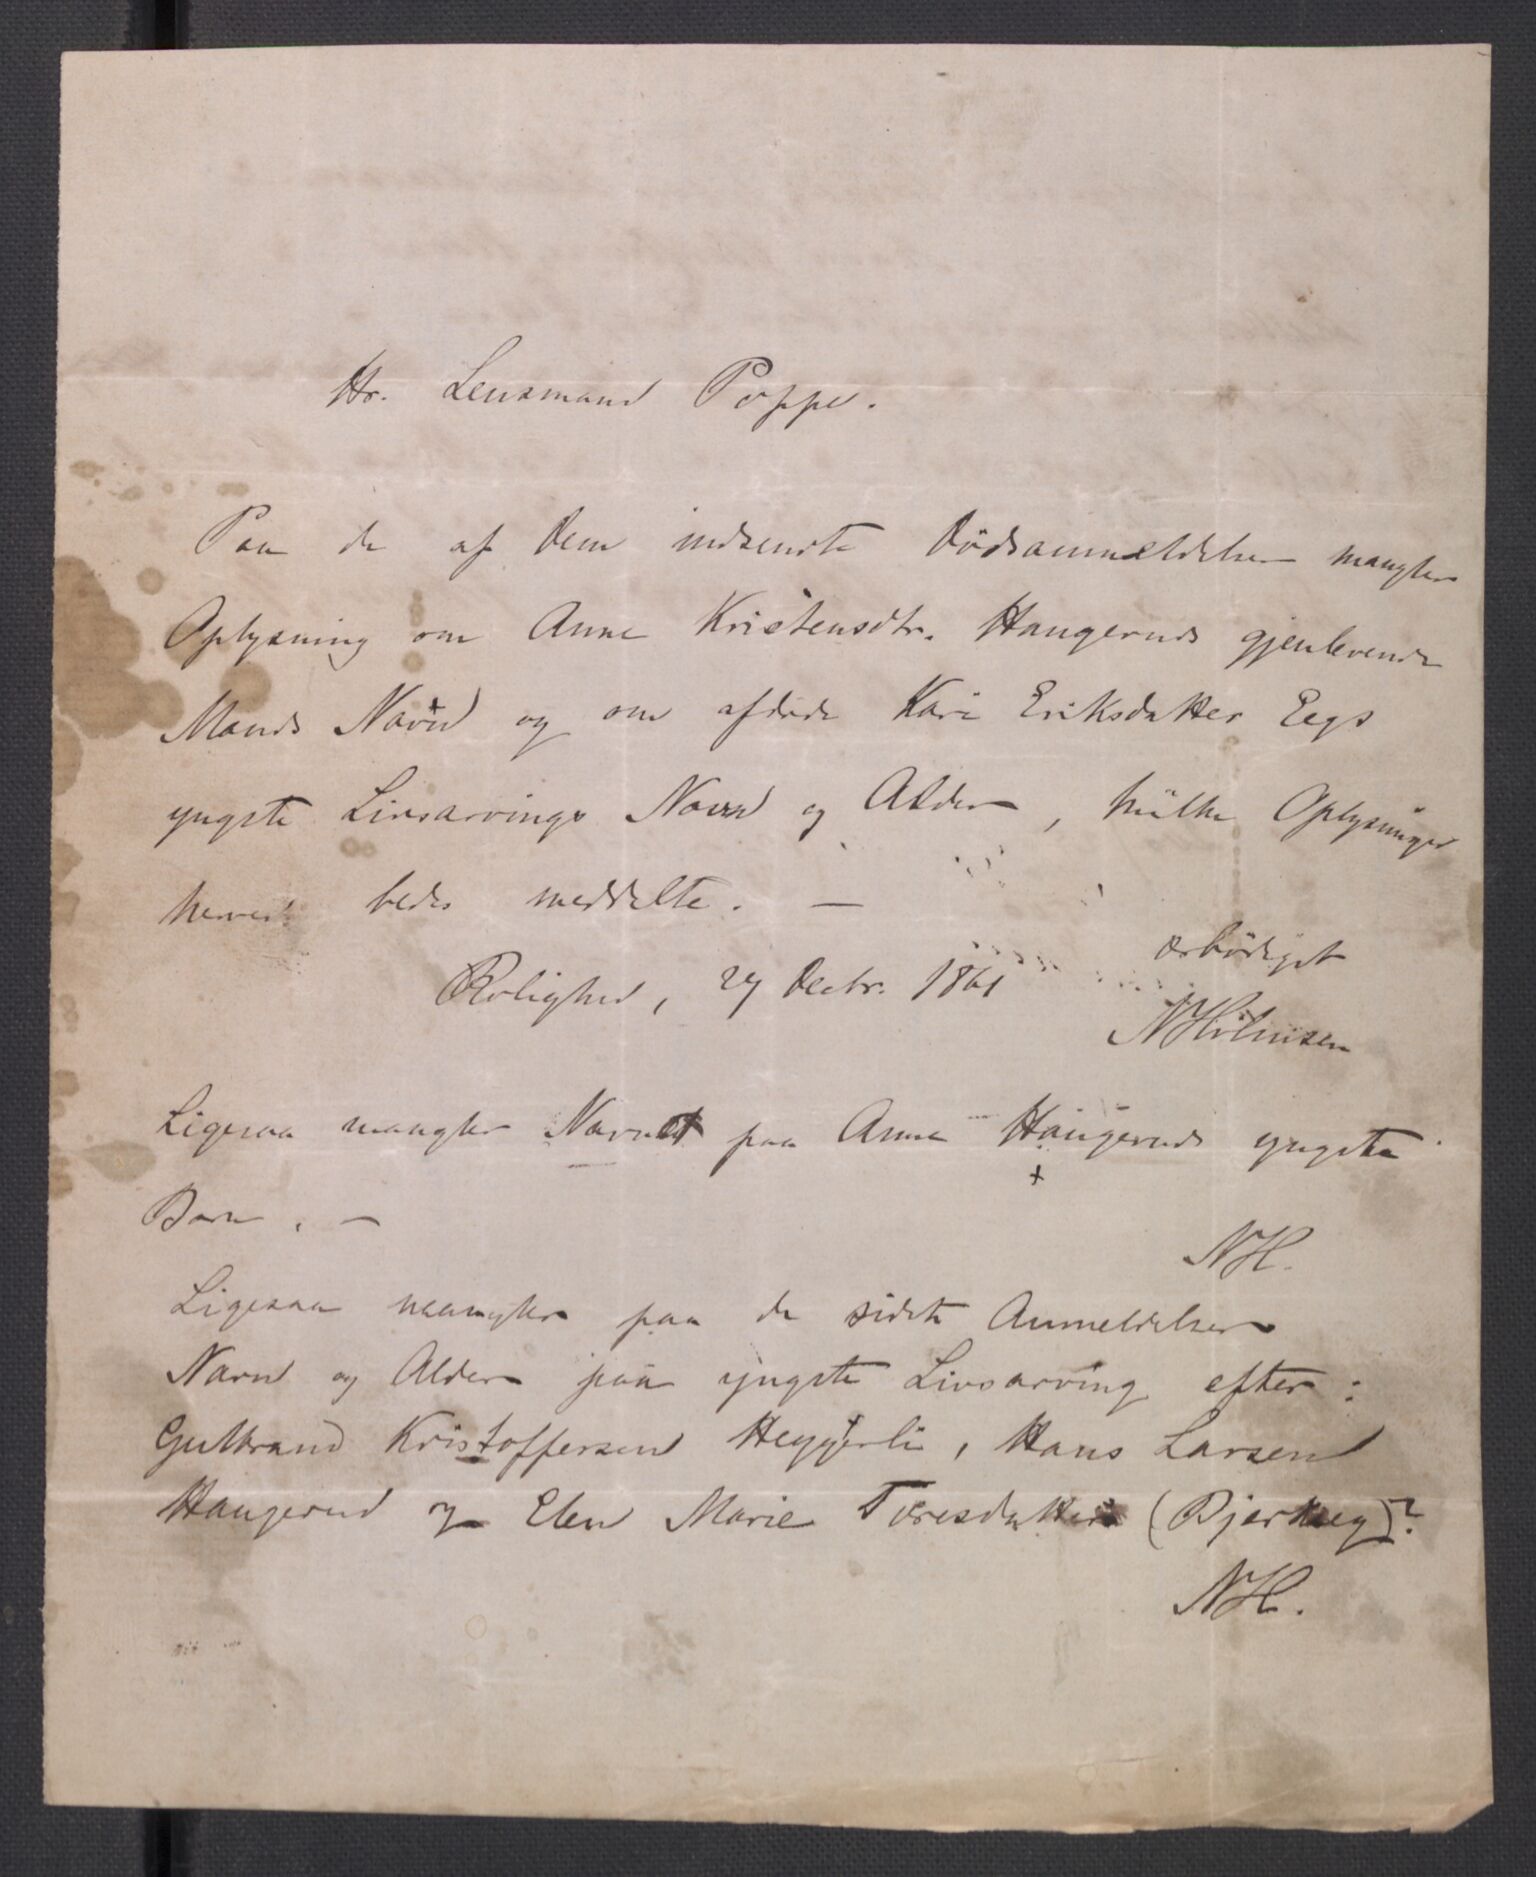 Hr. Lensmand Poppe.
Paa de af Dem indsendte Dödsanmeldelser mangler
Oplysning om Anne Kristensdtr. Haugeruds gjenlevende
Mands Navn og om afdøde Kari Eriksdatter Eegs
yngste Livsarvings Navn og Alder, hvilke Oplysninger
herved bedes meddelte. —
Rolighed, 27 Decbr. 1861
ærbödigst
N Holmsen
Ligesaa mangler Navnet paa Anne Haugeruds yngste
+
Barn. —
NH.
Ligesaa mangler paa de sidste Anmeldelser
Navn og Alder paa yngste Livsarving efter:
Gulbrand Kristoffersen Heggerli, Hans Larsen
Haugerud og Elen Marie Toresdatter (Bjerkeeg)?
NH.